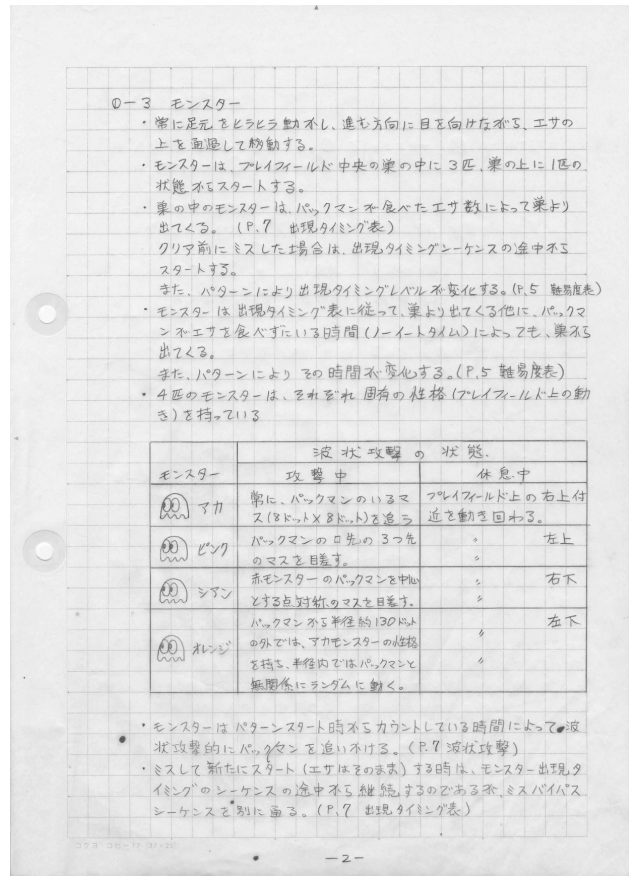 ①-3 モンスター
・常に足元をヒラヒラ動かし、進む方向に目を向けながら、エサの
上を通過して移動する。
・モンスターは、プレイフィールド中央の巣の中に3匹、巣の上に1匹の
状態からスタートする。
・巣の中のモンスターは、パックマンが食べたエサ数によって巣より
出てくる。 (P.7 出現タイミング表)
クリア前にミスした場合は、出現タイミングシーケンスの途中から
スタートする。
また、パターンにより出現タイミングレベルが変化する。(P.5 難易度表)
・モンスターは出現タイミング表に従って、巣より出てくる他に、パックマ
ンがエサを食べずにいる時間(ノーイートタイム)によっても、巣から
出てくる。
また、パターンによりその時間が変化する。(P.5 難易度表)
・4匹のモンスターは、それぞれ固有の性格(プレイフィールド上の動
き)を持っている
波状攻撃の状態.
モンスター 攻撃中 休息中
アカ 常に、パックマンのいるマ プレイフィールド上の右上付
ス(8ドット×8ドット)を追う 近を動き回わる。
ピンク パックマンの口先の3つ先 〃 左上
のマスを目差す。 〃
シアン 赤モンスターのパックマンを中心 〃 右下
とする点対称のマスを目差す. 〃
オレンジ パックマンから半径約130ドット 〃 左下
の外では、アカモンスターの性格
を持ち、半径内ではパックマンと 〃
無関係にランダムに動く。
・モンスターはパターンスタート時からカウントしている時間によって、波
状攻撃的にパックマンを追いかける。(P.7 波状攻撃)
・ミスして新たにスタート(エサはそのまま)する時は、モンスター出現タ
イミングのシーケンスの途中から継続するのであるが、ミスバイパス
シーケンスを別に通る。(P.7 出現タイミング表)
-2-